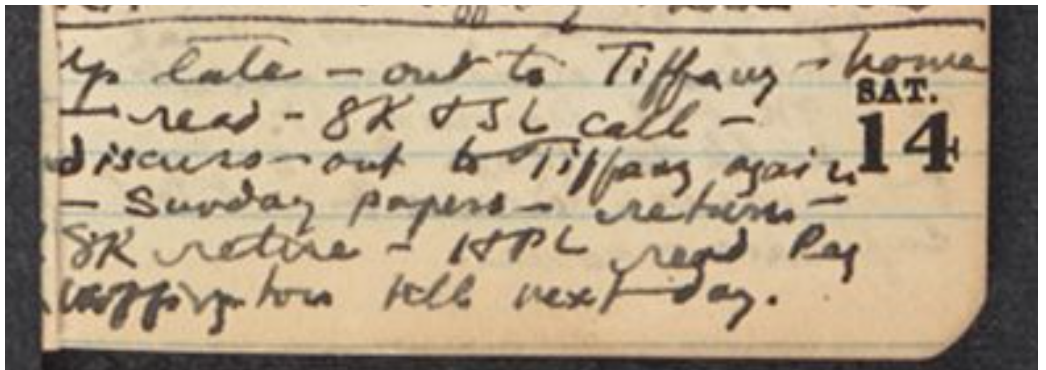 Up late — out to Tiffany — home
SAT.
14
— read — GK & SL call —
discuss — out to Tiffany again
— Sunday papers — return —
GK retire — HPL read Peg
Woffington till next day.